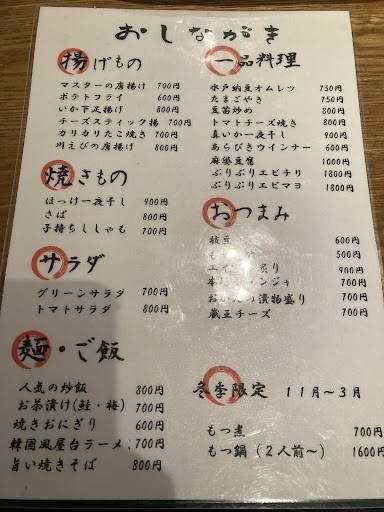 おしながき
揚げもの
マスターの唐揚げ 700円
ポテトフライ 600円
いか下足揚げ 700円
チーズスティック揚 700円
カリカリたこ焼き 700円
川えびの唐揚げ 800円
焼きもの
ほっけ一夜干し 900円
さば 800円
子持ちししゃも 700円
サラダ
グリーンサラダ 700円
トマトサラダ 800円
麺・ご飯
人気の炒飯 800円
お茶漬け(鮭・梅) 700円
焼きおにぎり 600円
韓国風屋台ラーメン 700円
旨い焼きそば 800円
一品料理
水戸納豆オムレツ 750円
たまごやき 750円
豆苗炒め 800円
トマトチーズ焼き 800円
真いか一夜干し 900円
あらびきウインナー 600円
麻婆豆腐 1000円
ぷりぷりエビチリ 1800円
ぷりぷりエビマヨ 1800円
おつまみ
枝豆 600円
500円
エイ 炙り 900円
ンジャ 700円
の漬物盛り 700円
蔵豆チーズ 700円
冬季限定 11月~3月
もつ煮 700円
もつ鍋(2人前~) 1600円